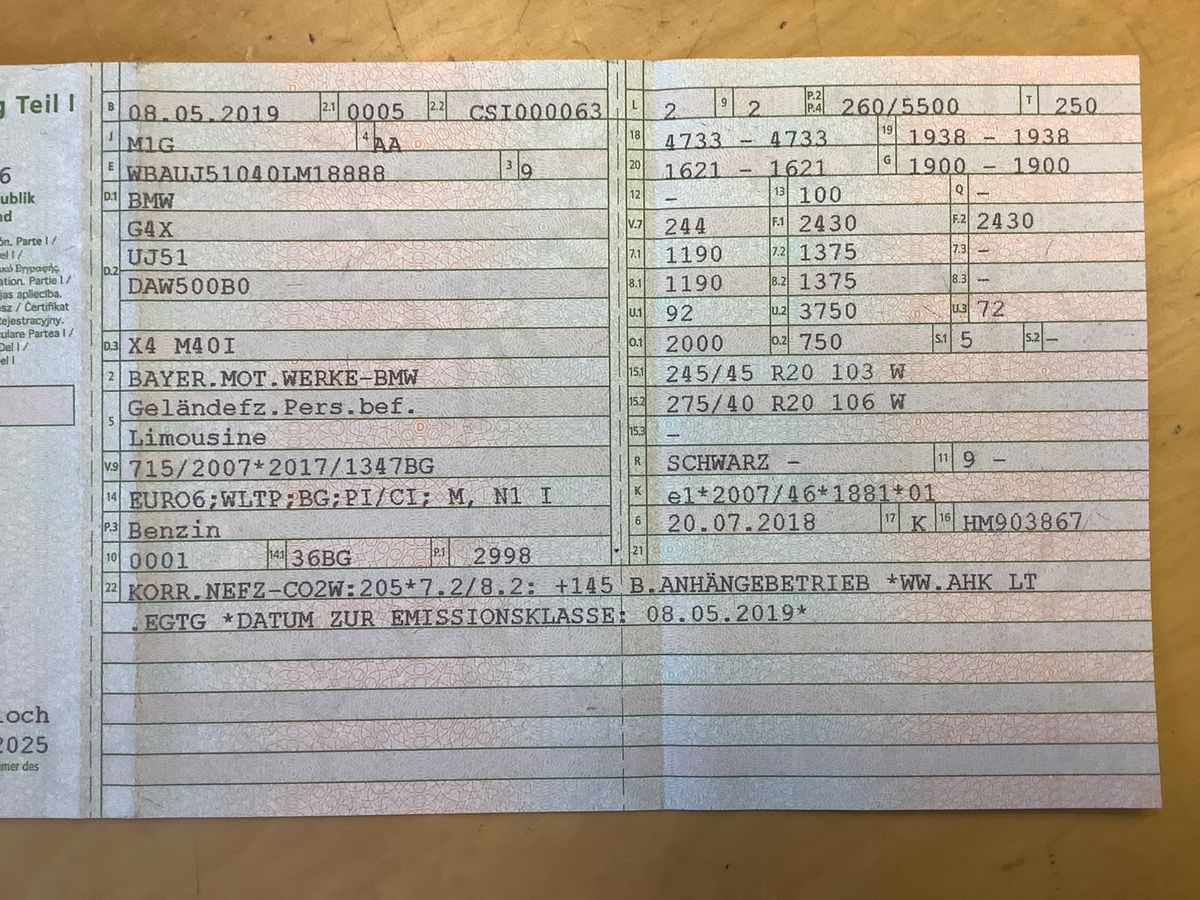 g Teil I
6
ublik
nd
ón. Parte I /
el I /
ation. Partie I /
jas apliecība.
sz / Certifikat
Rejestracyjny.
culare Partea I /
Del I /
el I
och
2025
mer des
B 08.05.2019 2.1 0005 2.2 CSI000063
J M1G 4 AA
E WBAUJ51040LM18888 3 9
D.1 BMW
D.2 G4X
UJ51
DAW500B0
D.3 X4 M40I
2 BAYER.MOT.WERKE-BMW
5 Geländefz.Pers.bef.
Limousine
V.9 715/2007*2017/1347BG
14 EURO6;WLTP;BG;PI/CI; M, N1 I
P.3 Benzin
10 0001 14.1 36BG P.1 2998
L 2 9 2 P.2 P.4 260/5500 T 250
18 4733 - 4733 19 1938 - 1938
20 1621 - 1621 G 1900 - 1900
12 - 13 100 Q -
V.7 244 F.1 2430 F.2 2430
7.1 1190 7.2 1375 7.3 -
8.1 1190 8.2 1375 8.3 -
U.1 92 U.2 3750 U.3 72
O.1 2000 O.2 750 S.1 5 S.2 -
15.1 245/45 R20 103 W
15.2 275/40 R20 106 W
15.3 -
R SCHWARZ - 11 9 -
K e1*2007/46*1881*01
6 20.07.2018 17 K 16 HM903867
21
22 KORR.NEFZ-CO2W:205*7.2/8.2: +145 B.ANHÄNGEBETRIEB *WW.AHK LT
.EGTG *DATUM ZUR EMISSIONSKLASSE: 08.05.2019*